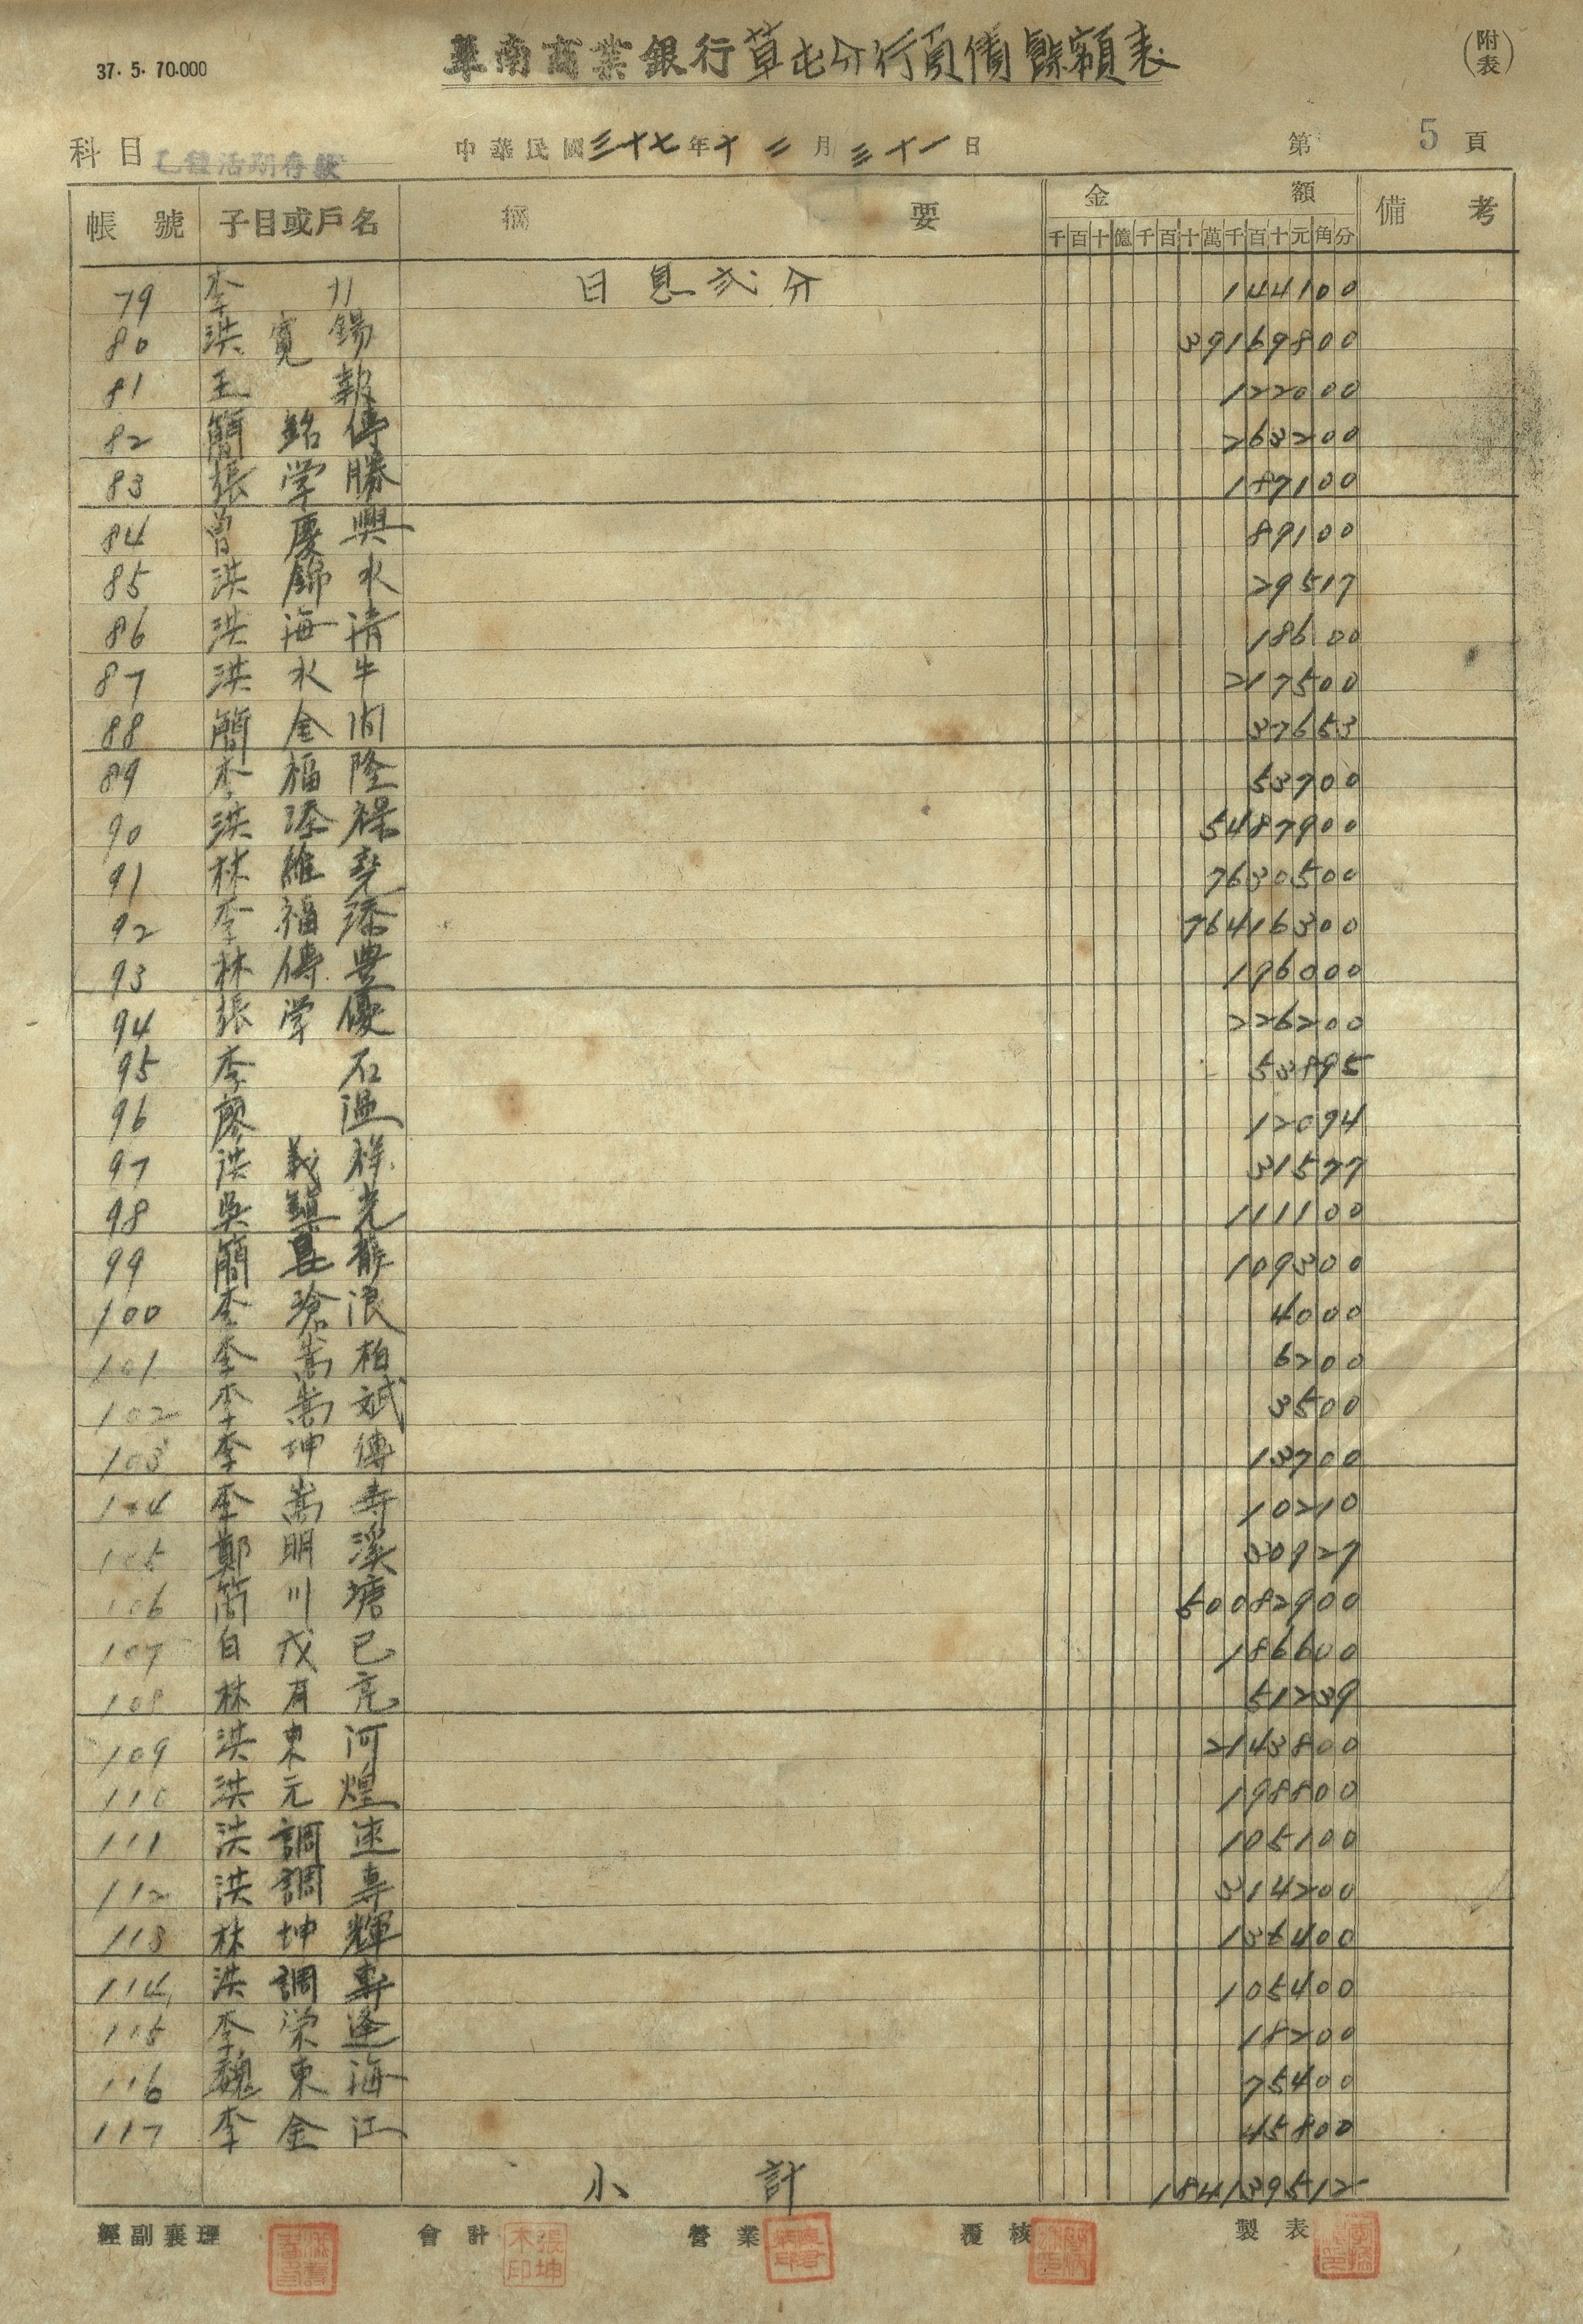 37. 5. 70.000
華南商業銀行草屯分行負債餘額表
(附表)
科目 乙種活期存款 中華民國三十七年十二月三十一日 第5頁
帳號 子目或戶名 摘要 金額 備考
千百十億千百十萬千百十元角分
79 李力 日息弍分 144100
80 洪寬錫 39169800
81 王報 122000
82 簡銘傳 263200
83 張学勝 187100
84 曾慶興 89100
85 洪錦水 29517
86 洪海清 18600
87 洪水牛 217500
88 簡金閙 37653
89 李福隆 53700
90 洪添祿 5487900
91 林維尭 7630500
92 李福添 76416300
93 林傳豊 196000
94 張学優 226200
95 李石 53895
96 廖溫 12094
97 洪義祥 31577
98 吳鎮光 111100
99 簡 109300
100 李滄浪 4000
101 李嵩柏 6200
102 李嵩斌 3500
103 李坤傳 13700
104 李嵩寿 10210
105 鄭明溪 30927
106 簡川塘 50082900
107 白戊已 186600
108 林有亮 51239
109 洪東河 2143800
110 洪元煌 198800
111 洪調速 105100
112 洪調專 314200
113 林坤輝 136400
114 洪調 105400
115 李栄逢 18200
116 魏東海 75400
117 李金江 45800
小計 184139512
經副襄理 會計 張坤木印 營業 覆核 製表